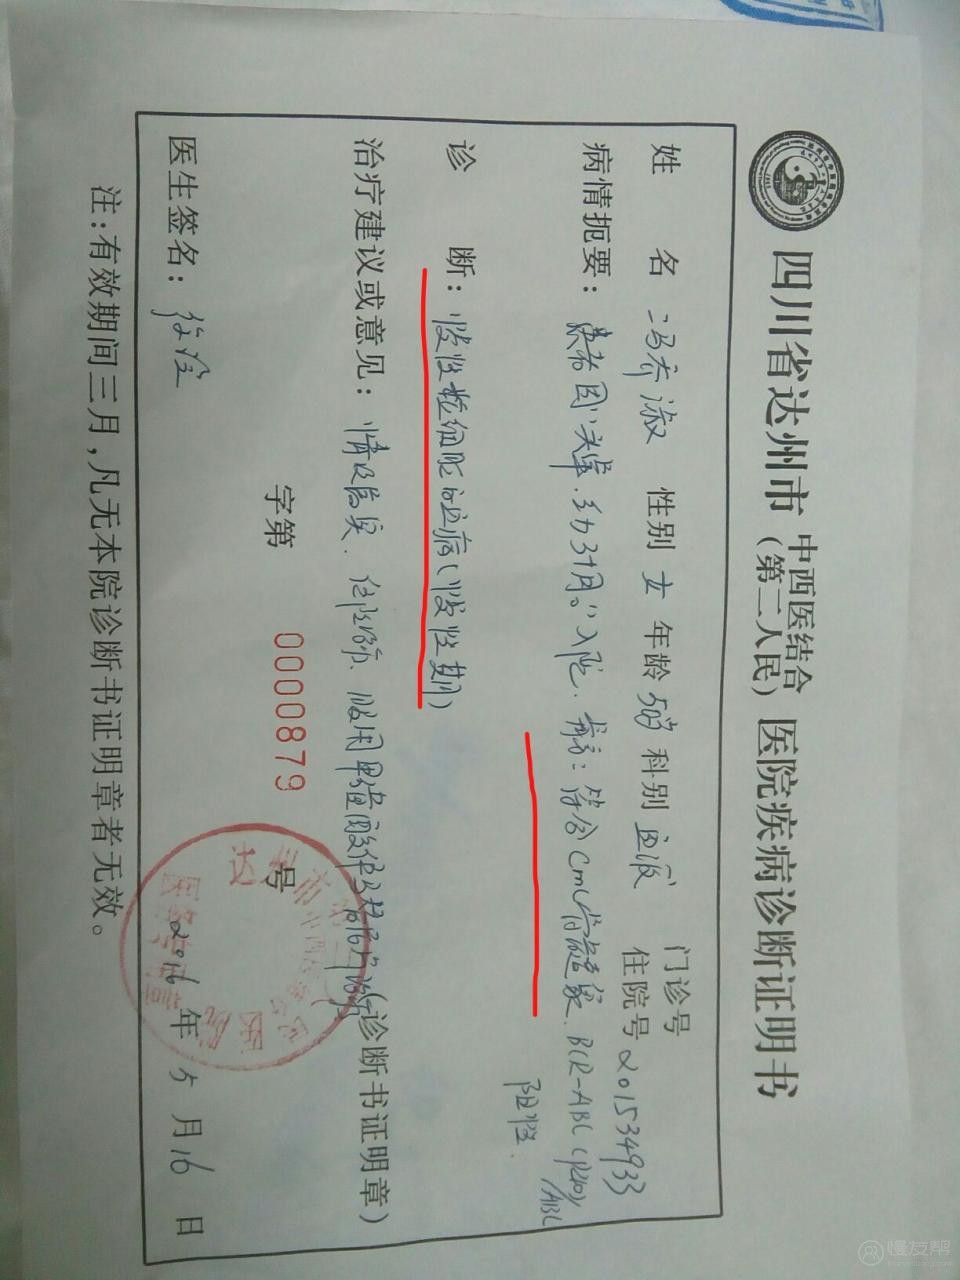 四川省达州市中西医结合（第二人民）医院疾病诊断证明书
门诊号
姓 名 冯乔淑 性别 女 年龄 科别 血液 住院号 201534933
病情扼要：患者因"头晕、乏力3+月。"入院. 符合CML骨髓象. BCR-ABL(P210)/ABL
阳性.
诊 断：慢性粒细胞白血病(慢性期)
治疗建议或意见：住院、服用甲磺酸伊马替尼片治疗(诊断书证明章)
字第 0000879 号
医生签名： 2016 年 5 月 16 日
注：有效期间三月,凡无本院诊断书证明章者无效。
慢友帮